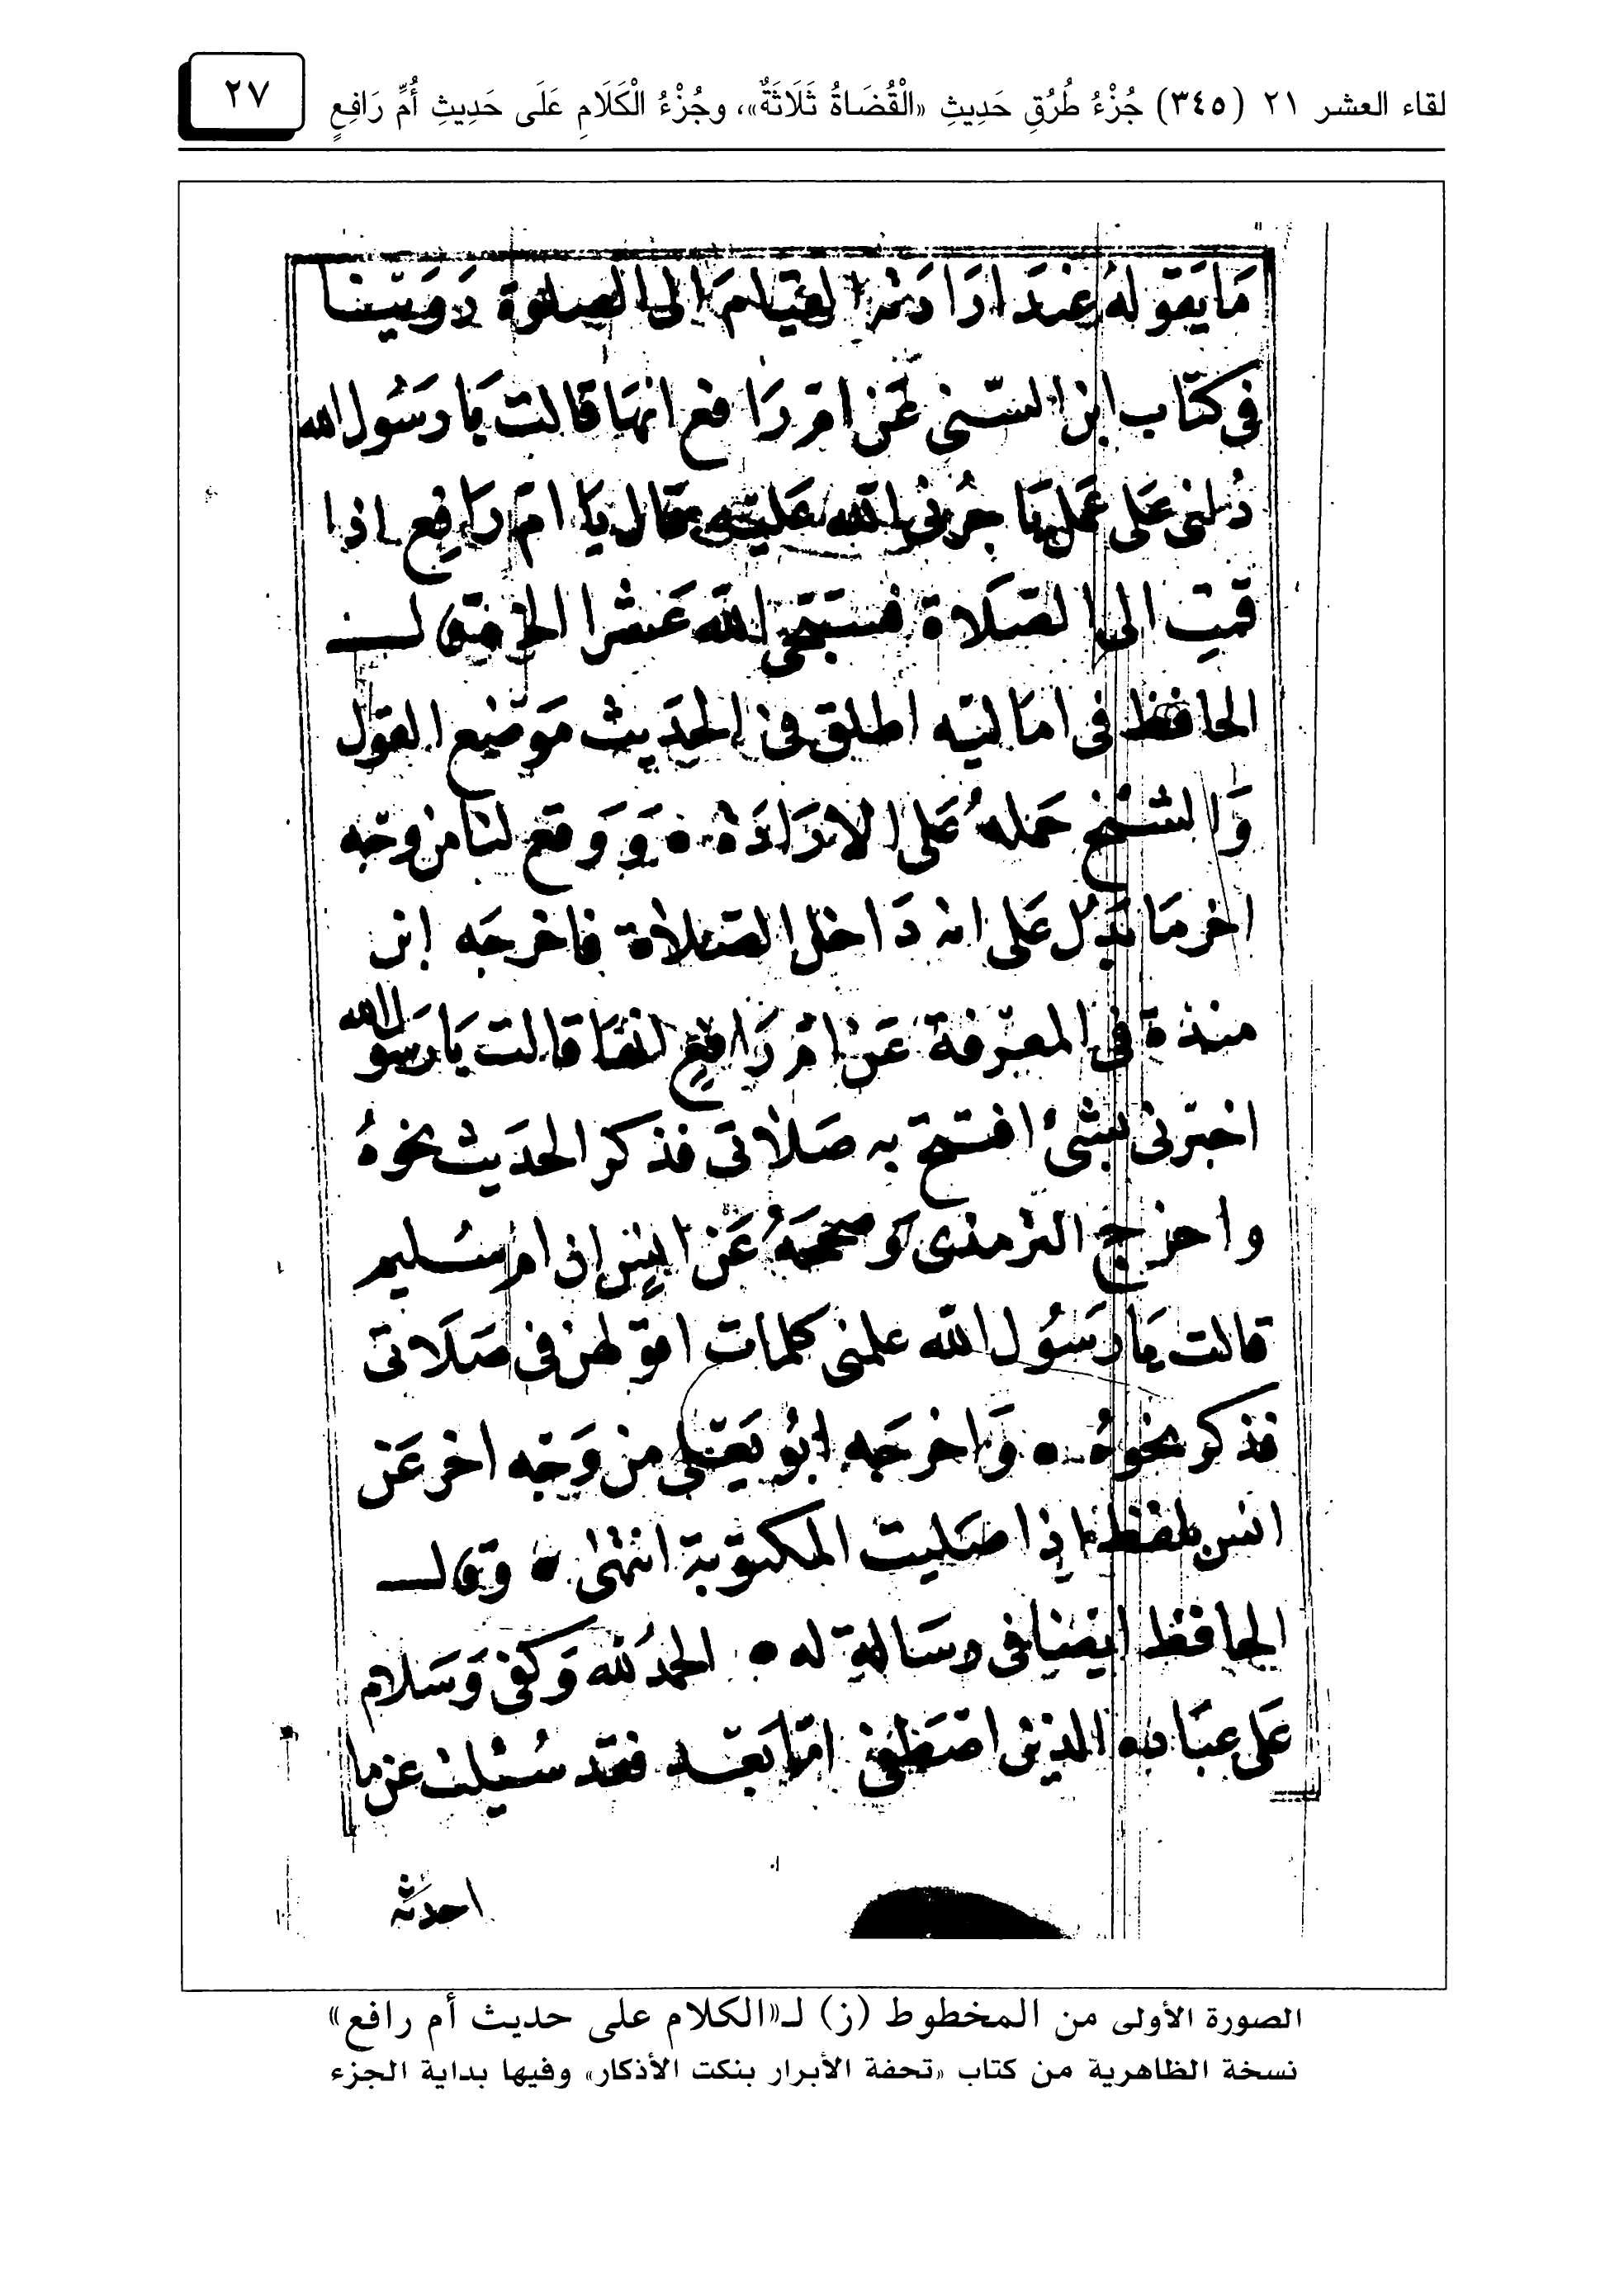 لقاء العشر ٢١ (٣٤٥) جُزْءُ طُرُقِ حَدِيثِ «الْقُضَاةُ ثَلَاثَةٌ»، وجُزْءُ الْكَلَامِ عَلَى حَدِيثِ أُمِّ رَافِعٍ
٢٧
مَا يَقولهُ عندَ ارَادَته القيام الى الصلوة رَوَينا
فى كتاب ابن السّنى عَن امّ رَافع انهَا قالت يَا رَسُول الله
دُلنى عَلى عَمل يَاجُرُنى الله عَليه قال يَا امّ رَافِع اذا
قمتِ الى الصَلاة فسَبّحى الله عَشرا الخ قال
الحافظ فى اماليه اطلق فى الحَديث مَوضع القول
وَالشيخ حَملهُ عَلى الارَادَة ه وَوَقع لنا من وجه
اخر مَا يَدل عَلى انه دَاخل الصَلاة فاخرجَه ابن
مندة فى المعرفة عَن امّ رَافعٍ انهَا قالت يَا رَسول الله
اخبرنى بشئ افتتح به صَلاتى فذكر الحَديث نحوهُ
واخرج الترمذى وَصححَهُ عَن انسٍ ان ام سُليم
قالت يَا رَسُول الله علمنى كلمات اقولهن فى صَلاتى
فذكر نحوهُ ه وَاخرجَه ابُو يَعلى من وَجه اخر عَن
انس بلفظ اذا صَليت المكتوبة انتهى ه وقال
الحافظ ايضا فى رسَالة له ه الحمدُ لله وَكفى وَسَلام
عَلى عبَاده الذين اصَطفى امّا بَعد فقد سُئلت عن ما
احدثه
الصورة الأولى من المخطوط (ز) لـ«الكلام على حديث أم رافع»
نسخة الظاهرية من كتاب «تحفة الأبرار بنكت الأذكار» وفيها بداية الجزء